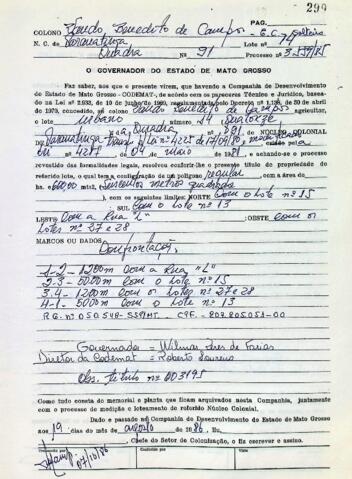 299
COLONO Zendo Benedito de Campos - E.C. Solteiro PAG.
N. C. de Paranatinga Lote nº 14
Quadra 91 Processo nº 3.559/85
O GOVERNADOR DO ESTADO DE MATO GROSSO
Faz saber, aos que o presente virem, que havendo a Companhia de Desenvolvimento
do Estado de Mato Grosso - CODEMAT, de acordo com os pareceres Técnico e Jurídico, baseado
na Lei nº 2.933, de 10 de Junho de 1969, regulamentada pelo Decreto nº 1.138, de 30 de abril
de 1970, concedido, ao colono Zendo Benedito de Campos agricultor,
o lote urbano número 14 quatorze
Quadra nº 91 NÚCLEO COLONIAL
Paranatinga Lei nº 4225 de
Lei nº 4287 de maio de 1981, e achando-se o processo
revestido das formalidades legais, resolveu conferir-lhe o presente título de propriedade do
referido lote, o qual tem a configuração de um polígono regular com a área de
ha 600,00 mts2, Seiscentos metros quadrados
), com os seguintes limites: NORTE Com o Lote nº 15
SUL Com o Lote nº 13
LESTE Com a Rua "L" ; OESTE com os
Lotes nº 27 e 28
MARCOS OU DADOS Confrontação:
1-2 - 1200m com a Rua "L"
2-3 - 5000m com o Lote nº 15
3-4 - 1200m com os Lotes nº 27 e 28
4-1 - 5000m com o Lote nº 13
R.G. nº 050.548-SSP/MT - CPF.
Governador = Wilmar Peres de Farias
Diretor da Codemat = Roberto Loureiro
Obs. Título nº 003195
Como tudo consta do memorial e planta que ficam arquivados nesta Companhia, juntamente
com o processo de medição e loteamento do referido Núcleo Colonial.
Dado e passado na Companhia de Desenvolvimento do Estado de Mato Grosso
aos 19 dias do mês de agosto de 1986. Eu,
Chefe do Setor de Colonização, o fiz escrever e assino.
Conferido por Visto
07/10/86